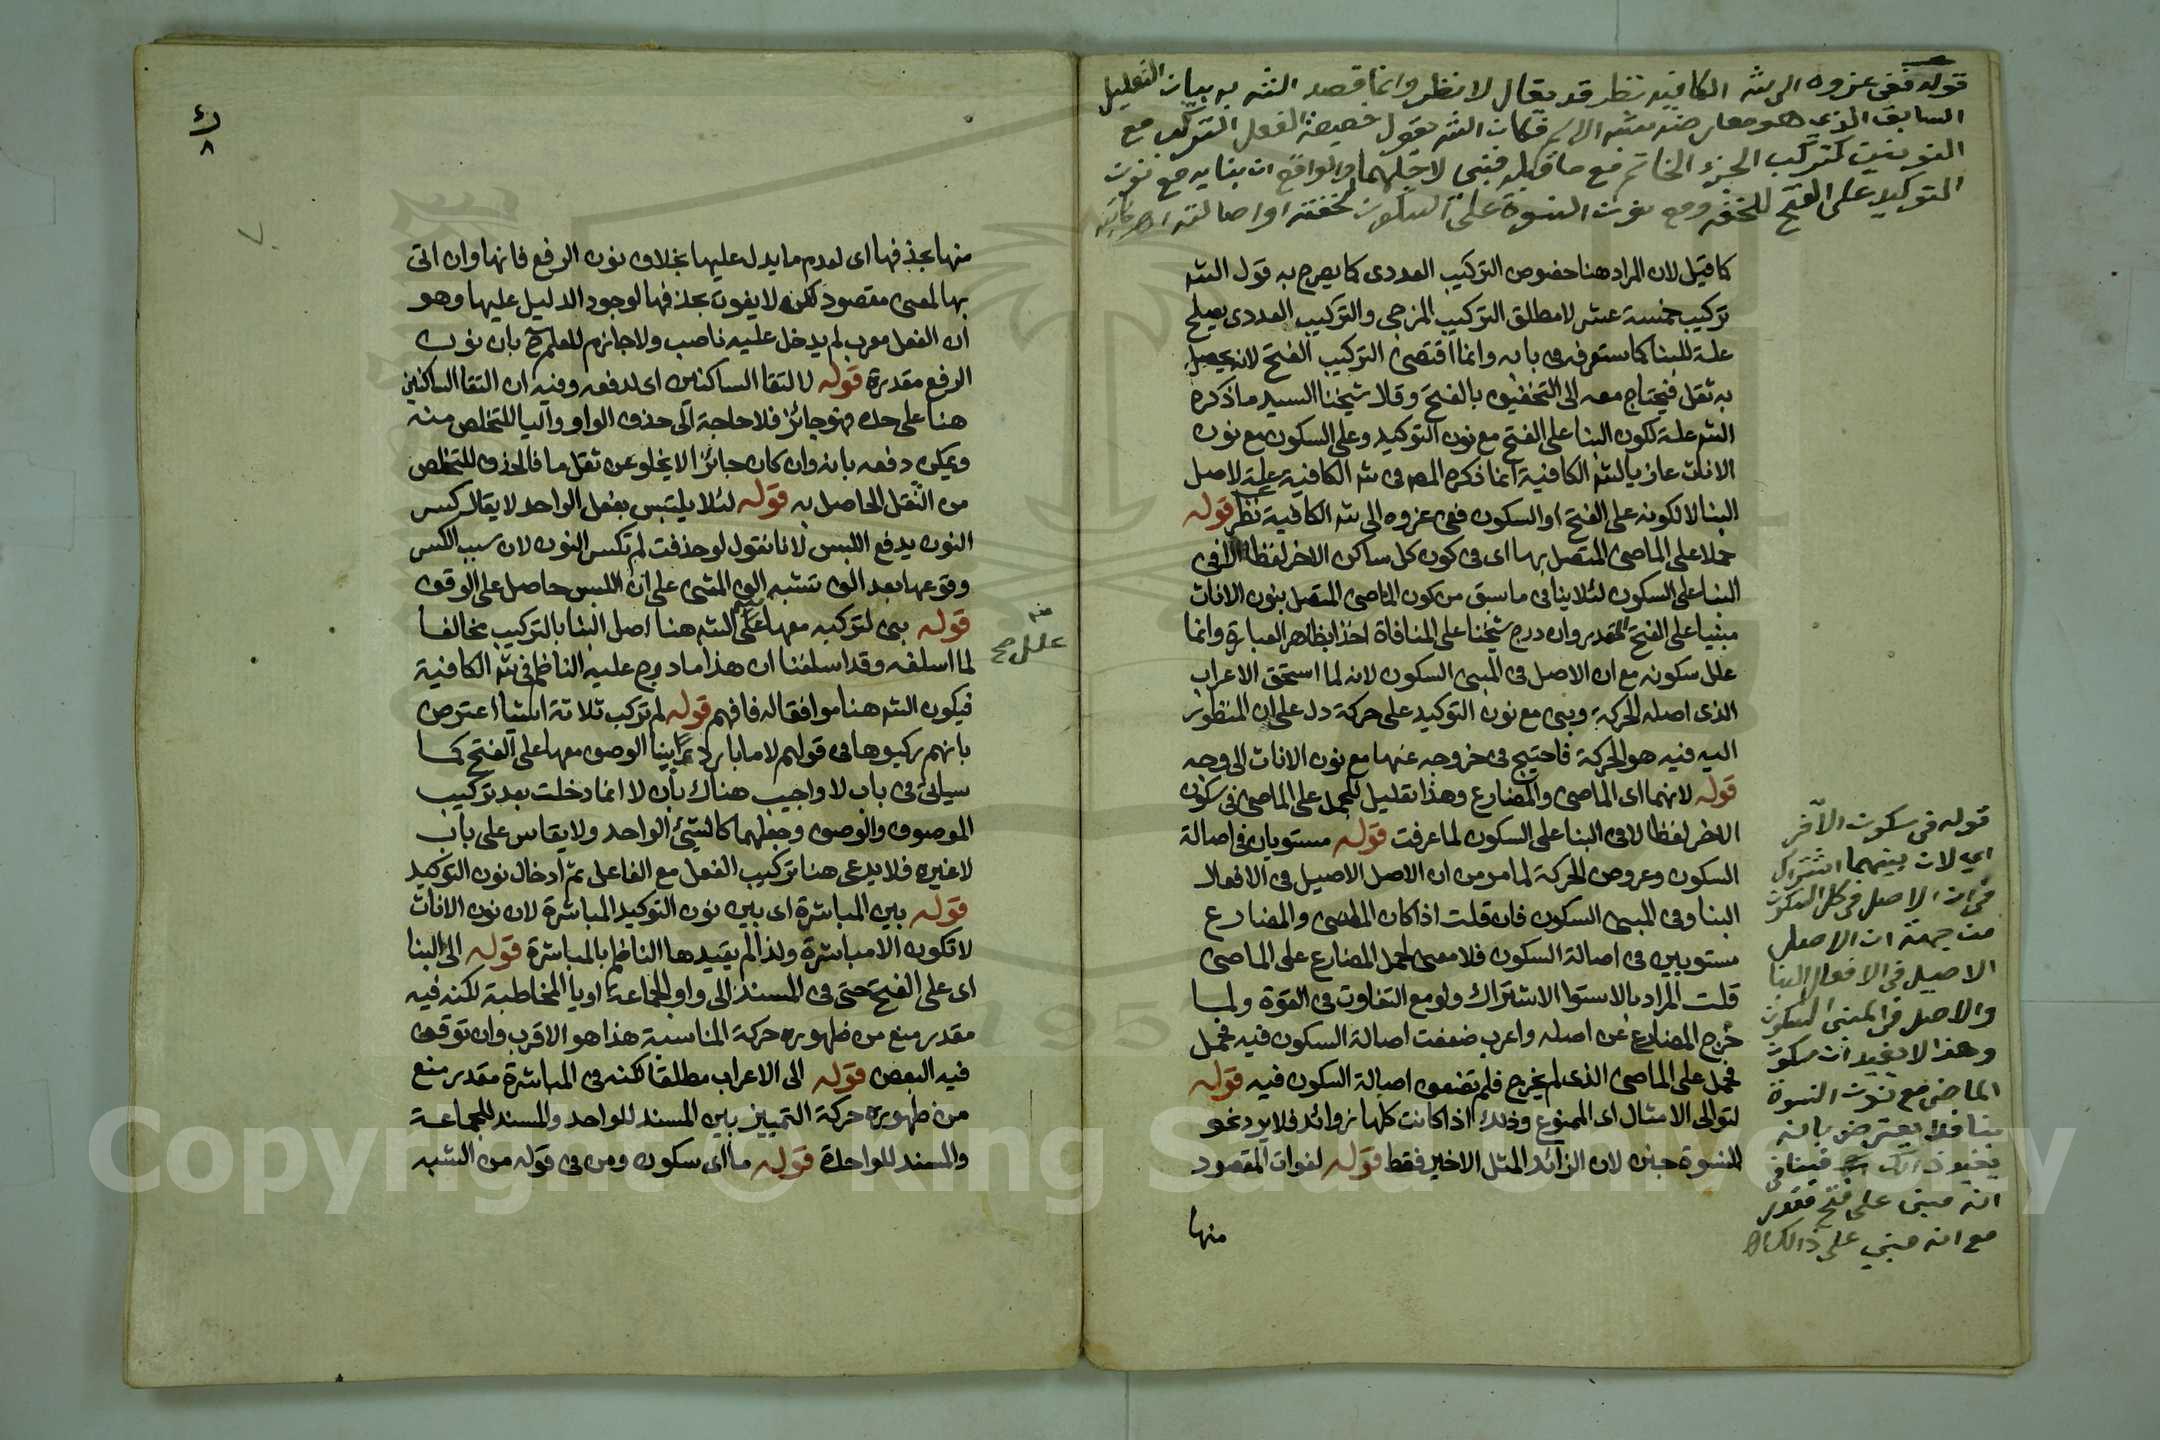 قوله ففى عزوه الى شرح الكافيه نظر قد يقال لا نظر وانما قصد الشه به بيان التعليل
السابق الذي هو فكان الشه يقول الفعل التركب مع
النونين كتركب الجزء مع ما قبله فبنى لاجلهما والواقع ان بنايه مع نون
التوكيد على الفتح للخفه ومع نون النسوة على السكون لخفته او اصالته اهـ
كما قيل لان المراد هنا خصوص التركيب العددى كما يصرح به قول الشه
تركيب خمسة عشر لا مطلق التركيب المزجى والتركيب العددى يصلح
علة للبنا كما ستعرفه فى بابه وانما اقتضى التركيب الفتح لانه يحصل
به ثقل فيحتاج معه الى التخفيف بالفتح وقال شيخنا السيد ما ذكره
الشه علة لكون البنا على الفتح مع نون التوكيد وعلى السكون مع نون
الاناث عازيا لشه الكافية انما ذكره المص فى شه الكافيه علة لاصل
البنا لا لكونه على الفتح او السكون ففى عزوه الى شه الكافية نظر قوله
حملا على الماضى المتصل بها اى فى كون كل ساكن الاخر لفظا لا فى
البنا على السكون لئلا ينافى ما سبق من كون الماضى المتصل بنون الاناث
مبنيا على الفتح المقدر وان درج شيخنا على المنافاة اخذا بظاهر العبارة وانما
علل سكونه مع ان الاصل فى المبنى السكون لانه لما استحق الاعراب
الذى اصله الحركة وبنى مع نون التوكيد على حركة دل على ان المنظور
اليه فيه هو الحركة فاحتيج فى خروجه عنها مع نون الاناث الى وجه
قوله لانهما اى الماضى والمضارع وهذا تعليل للحمل على الماضى فى سكون
الاخر لفظا لا فى البنا على السكون لما عرفت قوله مستويان فى اصالة
السكون وعروض الحركة لما مر من ان الاصل الاصيل فى الافعال
البنا وفى المبنى السكون فان قلت اذا كان الماضى والمضارع
مستويين فى اصالة السكون فلا معنى لحمل المضارع على الماضى
قلت المراد بالاستوا الاشتراك ولو مع التفاوت فى القوة ولما
خرج المضارع عن اصله واعرب ضعفت اصالة السكون فيه فحمل
فحمل على الماضى الذى لم يخرج فلم تضعف اصالة السكون فيه قوله
لتوالى الامثال اى الممنوع وذلك اذا كانت كلها زوائد فلا يرد نحو
النسوة جنن لان الزائد المثل الاخير فقط قوله لفوات المقصود
منها
قوله فى سكون الآخر
اي لان بينهما اشتراك
فى ان الاصل فى كل السكون
من جهة ان الاصل
الاصيل فى الافعال البنا
والاصل فى المبنى السكون
وهذا لا يفيد ان سكون
الماضى مع نون النسوة
بنا فلا يعترض بانه
يفيد ذلك فينافى
انه مبنى على فتح مقدر
مع انه مبني على ذلك اهـ
٨
منها بحذفها اى لعدم ما يدل عليها بخلاف نون الرفع فانها وان اتى
بها لمعنى مقصود لكن لا يفوت بحذفها لوجود الدليل عليها وهو
ان الفعل معرب لم يدخل عليه ناصب ولا جازم للعلم ح بان نون
الرفع مقدرة قوله لالتقا الساكنين اى لدفعه وفيه ان التقا الساكنين
هنا على حده فهو جائز فلا حاجة الى حذف الواو واليا للتخلص منه
ويمكن دفعه بانه وان كان جائزا لا يخلو عن ثقل ما فالحذف للتخلص
من الثقل الحاصل به قوله لئلا يلتبس بفعل الواحد لا يقال كسر
النون يدفع اللبس لانا نقول لو حذفت لم تكسر النون لان سبب الكسر
وقوعها بعد الف تشبه الف المثنى على ان اللبس حاصل على الوقف
قوله بنى لتركبه معها علل الشه هنا اصل البنا بالتركيب مخالفا
منه
علل صح
لما اسلفه وقد اسلفنا ان هذا ما درج عليه الناظم فى شه الكافية
فيكون الشه هنا موافقا له فافهم قوله لم تركب ثلاثة اشيا اعترض
بانهم ركبوها فى قولهم لا ما باردَ ببنا الوصف معها على الفتح كما
سيأتى فى باب لا واجيب هناك بأن لا انما دخلت بعد تركيب
الموصوف والوصف وجعلهما كالشيئ الواحد ولا يقاس على باب
لا غيره فلا يدعى هنا تركيب الفعل مع الفاعل ثم ادخال نون التوكيد
قوله بين المباشرة اى بين نون التوكيد المباشرة لان نون الاناث
لا تكون الا مباشرة ولذا لم يقيدها الناظم بالمباشرة قوله الى البنا
اى على الفتح حتى فى المسند الى واو الجماعة او يا المخاطبة لكنه فيه
مقدر منع من ظهوره حركة المناسبة هذا هو الاقرب وان توقف
فيه البعض قوله الى الاعراب مطلقا لكنه فى المباشرة مقدر منع
من ظهوره حركة التمييز بين المسند للواحد والمسند للجماعة
والمسند للواحدة قوله ما اى سكون ومن فى قوله من الشبه
Copyright © King Saud University
1957